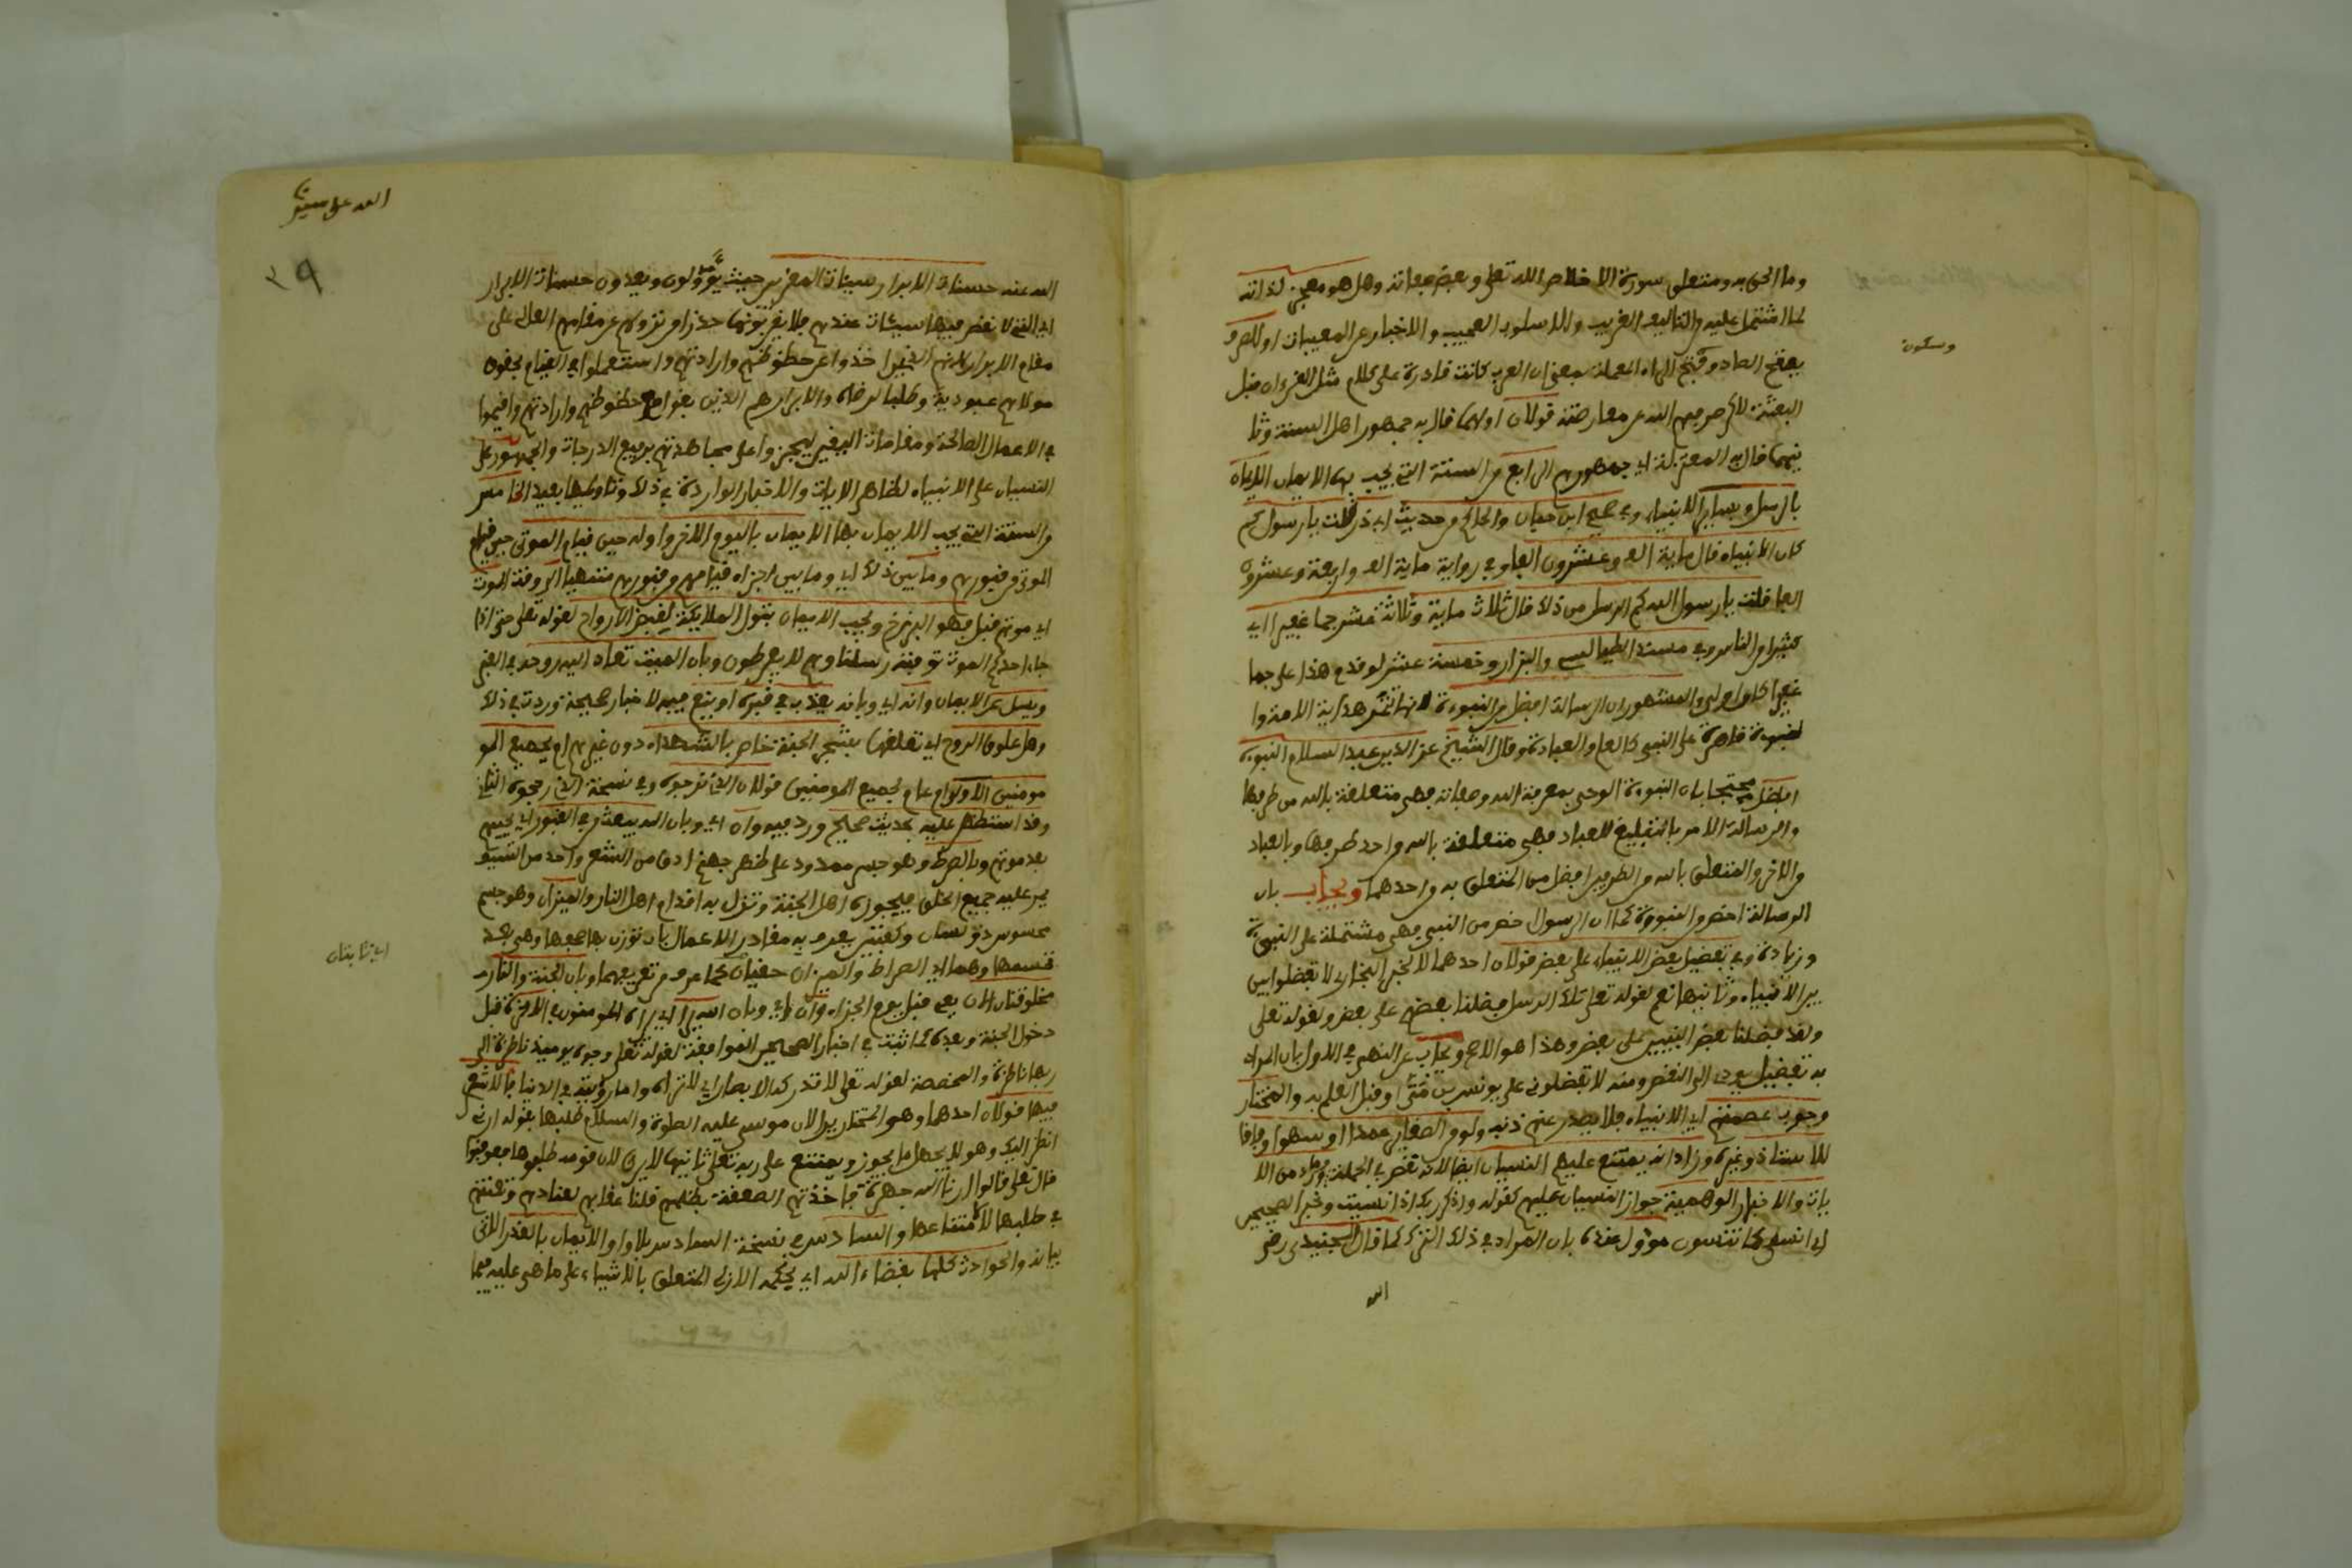 وما الحق به ومتعلق سورة الاخلاص الله تعلى وبعض صفاته وهل هو معجز لذاته
لما اشتمل عليه من التاليف الغريب والاسلوب العجيب والاخبار عن المغيبات او للصرف
وسكون
بفتح الصاد وفتح الراء المهملة بمعنى ان العرب كانت قادرة على كلام مثل القرءان قبل
البعثة لاكن صرفهم الله عن معارضته قولان اولهما قال به جمهور اهل السنة وثا
نيهما قال به المعتزلة اي جمهورهم الرابع من الستة التي يجب بها الايمان الايمان
بالرسل وبساير الانبياء وفي صحيح ابن حبان والحاكم من حديث ابي ذر قلت يا رسول كم
كان الانبياء قال ماية الف وعشرون الفا وفي رواية ماية الف واربعة وعشرون
الفا قلت يا رسول الله كم الرسل من ذلك قال ثلاث ماية وثلاثة عشر جما غفيرا اي
كثيرا من الناس وفي مسند الطيالسي والبزار وخمسة عشر لو قدم هذا على جما
غفيرا كان اولى والمشهور ان الرسالة افضل من النبوءة لانها تثمر هداية الامة وا
لنبوة قاصرة على النبي كالعلم والعبادة وقال الشيخ عز الدين عبد السلام النبوة
افضل محتجا بان النبوءة الوحي بمعرفة الله وصفاته فهي متعلقة بالله من طرفيها
والرسالة الامر بالتبليغ للعباد فهي متعلقة بالله من احد طرفيها وبالعباد
من الاخر والمتعلق بالله من الطرفين افضل من المتعلق به من احدهما ويجاب بان
الرسالة اخص من النبوة كما ان الرسول اخص من النبي فهي مشتملة على النبوة
وزيادة وفي تفضيل بعض الانبياء على بعض قولان احدهما لا لخبر البخاري لا تفضلوا بين
بين الانبياء وثانيهما نعم لقوله تعلى تلك الرسل فضلنا بعضهم على بعض ولقوله تعلى
ولقد فضلنا بعض النبيين على بعض وهذا هو الاصح ويجاب عن النهي في الاول بان المراد
به تفضيل يودي الى النقص ومنه لا تفضلوني على يونس بن متى او قبل العلم به والمختار
وجوب عصمتهم اي الانبياء فلا يصدر عنهم ذنب ولو من الصغاير عمدا او سهوا وفاقا
للاستاذ وغيره وزاد انه يمتنع عليهم النسيان ايضا لانه نقص في الجملة وما ورد من الا
يات والاخبار الموهمة جواز النسيان عليهم كقوله واذكر ربك اذا نسيت وخبر الصحيحين
اني انسى كما تنسون مؤول عنده بان المراد في ذلك الترك كما قال الجنيدي رضي
الله
الله على سيدنا
29
الله عنه حسنات الابرار سيئات المقربين حيث يؤولون ويعدون حسنات الابرار
اي التي لا نقص فيها سيئات عندهم فلا يقربونها حذرا من نزولهم عن مقامهم العالي على
مقام الابرار لانهم الذين اخذوا عن حظوظهم وارادتهم واستعملوا في القيام بحقوق
مولاهم عبودية وطلبا لرضاه والابرار هم الذين بقوا مع حظوظهم وارادتهم واقيموا
في الاعمال الصالحة ومقامات اليقين ليجزوا على مجاهدتهم برفيع الدرجات والجمهور على
النسيان على الانبياء لظاهر الايات والاخبار الواردة في ذلك وتاويلها بعيد الخامس
من الستة التي يجب الايمان بها الايمان باليوم الاخر واوله حين قيام الموتى حين قيام
الموتى من قبورهم وما بين ذلك اي وما بين اجزاء قيامهم من قبورهم منتهيا الى وقت الموت
اي موتهم قبل فهو البرزخ ويجب الايمان بتول الملايكة لقبض الارواح لقوله تعلى حتى اذا
جاء احدكم الموت توفته رسلنا وهم لا يفرطون وبان الميت تعاد اليه روحه في القبر
ويسل عن الايمان وانه اي وبانه يعذب في قبره او ينعم فيه لاخبار صحيحة وردت في ذلك
وهل علوق الروح اي تعلقها بشجر الجنة خاص بالشهداء دون غيرهم ام بجميع المو
مومنين الاولى او عام لجميع المومنين قولان الذي نرجوه وفي نسخة الذي رجحوه الثاني
وقد استظهر عليه بحديث صحيح ورد فيه وان اي وبان الله يبعث من في القبور اي يحييهم
بعد موتهم وبالصراط وهو جسر ممدود على ظهر جهنم ادق من الشعر واحد من السيف
يمر عليه جميع الخلق فيجوزه اهل الجنة وتزل به اقدام اهل النار والميزان وهو جسم
محسوس ذو لسان وكفتين يعرف به مقادير الاعمال بان توزن صحفها وهي بعد
اي ثابتان
قسمها وهما اي الصراط والميزان حقيان كما عرف من تعريفهما وبان الجنة والنار
مخلوقتان الان يعني قبل يوم الجزاء وان اي وبان الله يرى اي يراه المومنون في الاخرة قبل
دخول الجنة وبعده كما ثبت في اخبار الصحيحين الموافقة لقوله تعلى وجوه يوميذ ناظرة الى
ربها ناظرة والمخصصة لقوله تعلى لا تدركه الابصار اي لا تراه واما رؤيته في الدنيا فللاشعري
فيها قولان احدهما وهو المختار يرى لان موسى عليه الصلوة والسلام طلبها بقوله ارني
انظر اليك وهو لا يجهل ما يجوز ويمتنع على ربه تعلى ثانيهما لا يرى لان قومه طلبوها فعوقبوا
قال تعلى فقالوا ارنا الله جهرة فاخذتهم الصاعقة بظلمهم قلنا عقابهم لعنادهم وتعنتهم
في طلبها لا لامتناعها والسادس وفي نسخة السادس بلا واو الايمان بالقدر الاتي
بيانه والحوادث كلها بقضاء الله اي بحكمه الازلي المتعلق بالاشياء على ما هي عليه فيما